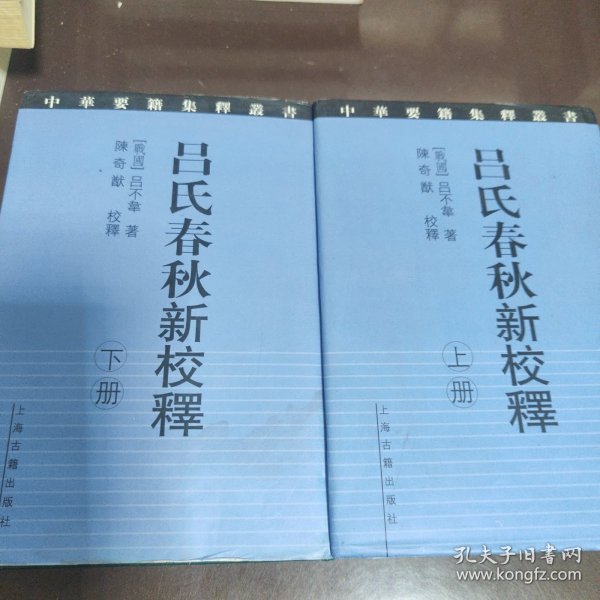 中華要籍集釋叢書
吕氏春秋新校釋
[戰國]吕不韋 著
陳奇猷 校釋
下册
上海古籍出版社
中華要籍集釋叢書
吕氏春秋新校釋
[戰國]吕不韋 著
陳奇猷 校釋
上册
上海古籍出版社
孔夫子旧书网
www.kongfz.com